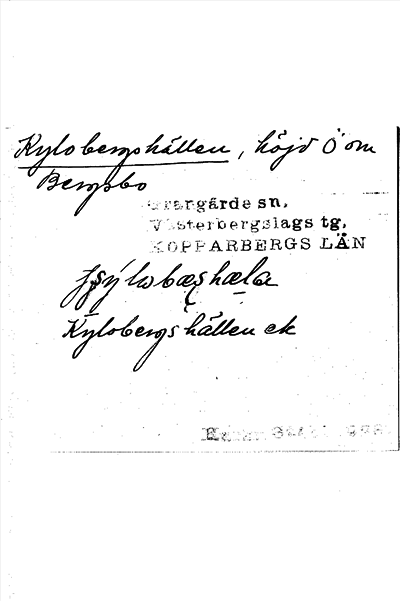 Kylobergshällen, höjd Ö om
Bergsbo
Grangärde sn.
Västerbergslags tg.
KOPPARBERGS LÄN
Kylobergshällen ek